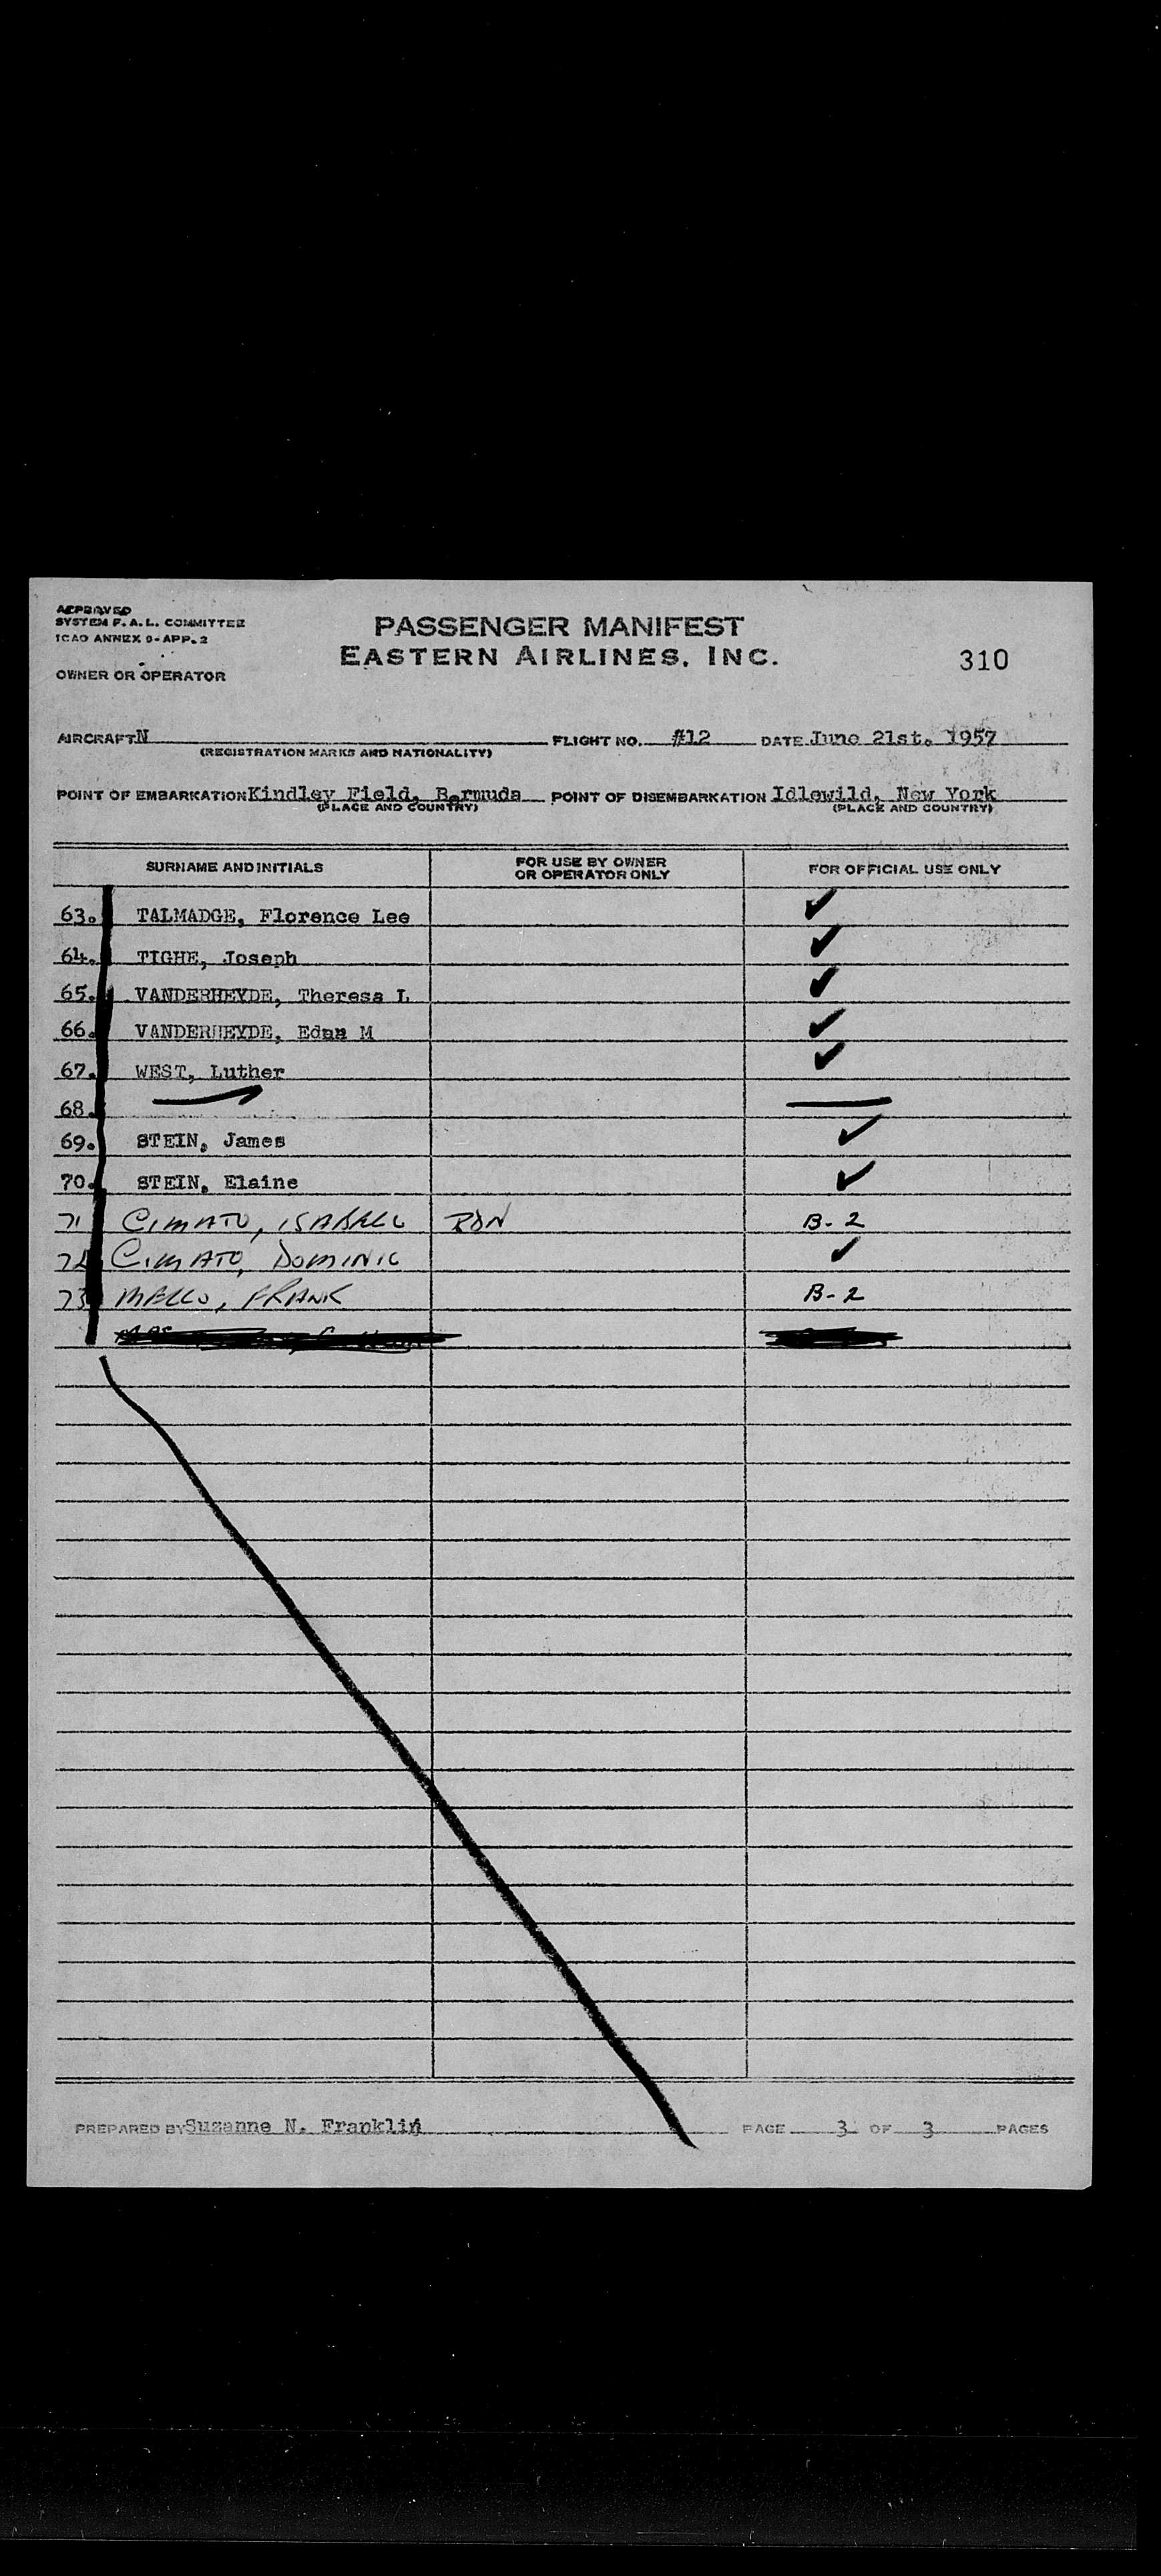 APPROVED
SYSTEM F. A. L. COMMITTEE
ICAO ANNEX 9-APP. 2
OWNER OR OPERATOR
PASSENGER MANIFEST
EASTERN AIRLINES, INC.
310
AIRCRAFT N FLIGHT NO. #12 DATE June 21st. 1957
(REGISTRATION MARKS AND NATIONALITY)
POINT OF EMBARKATION Kindley Field, Bermuda POINT OF DISEMBARKATION Idlewild, New York
(PLACE AND COUNTRY) (PLACE AND COUNTRY)
SURNAME AND INITIALS FOR USE BY OWNER OR OPERATOR ONLY FOR OFFICIAL USE ONLY
63. TALMADGE, Florence Lee ✓
64. TIGHE, Joseph ✓
65. VANDERHEYDE, Theresa L ✓
66. VANDERHEYDE, Edna M ✓
67. WEST, Luther ✓
68. —
69. STEIN, James ✓
70. STEIN, Elaine ✓
71 CIMATO, B-2
72 CIMATO, DOMINIC ✓
73 MELLO, FRANK B-2
PREPARED BY Suzanne N. Franklin PAGE 3 OF 3 PAGES